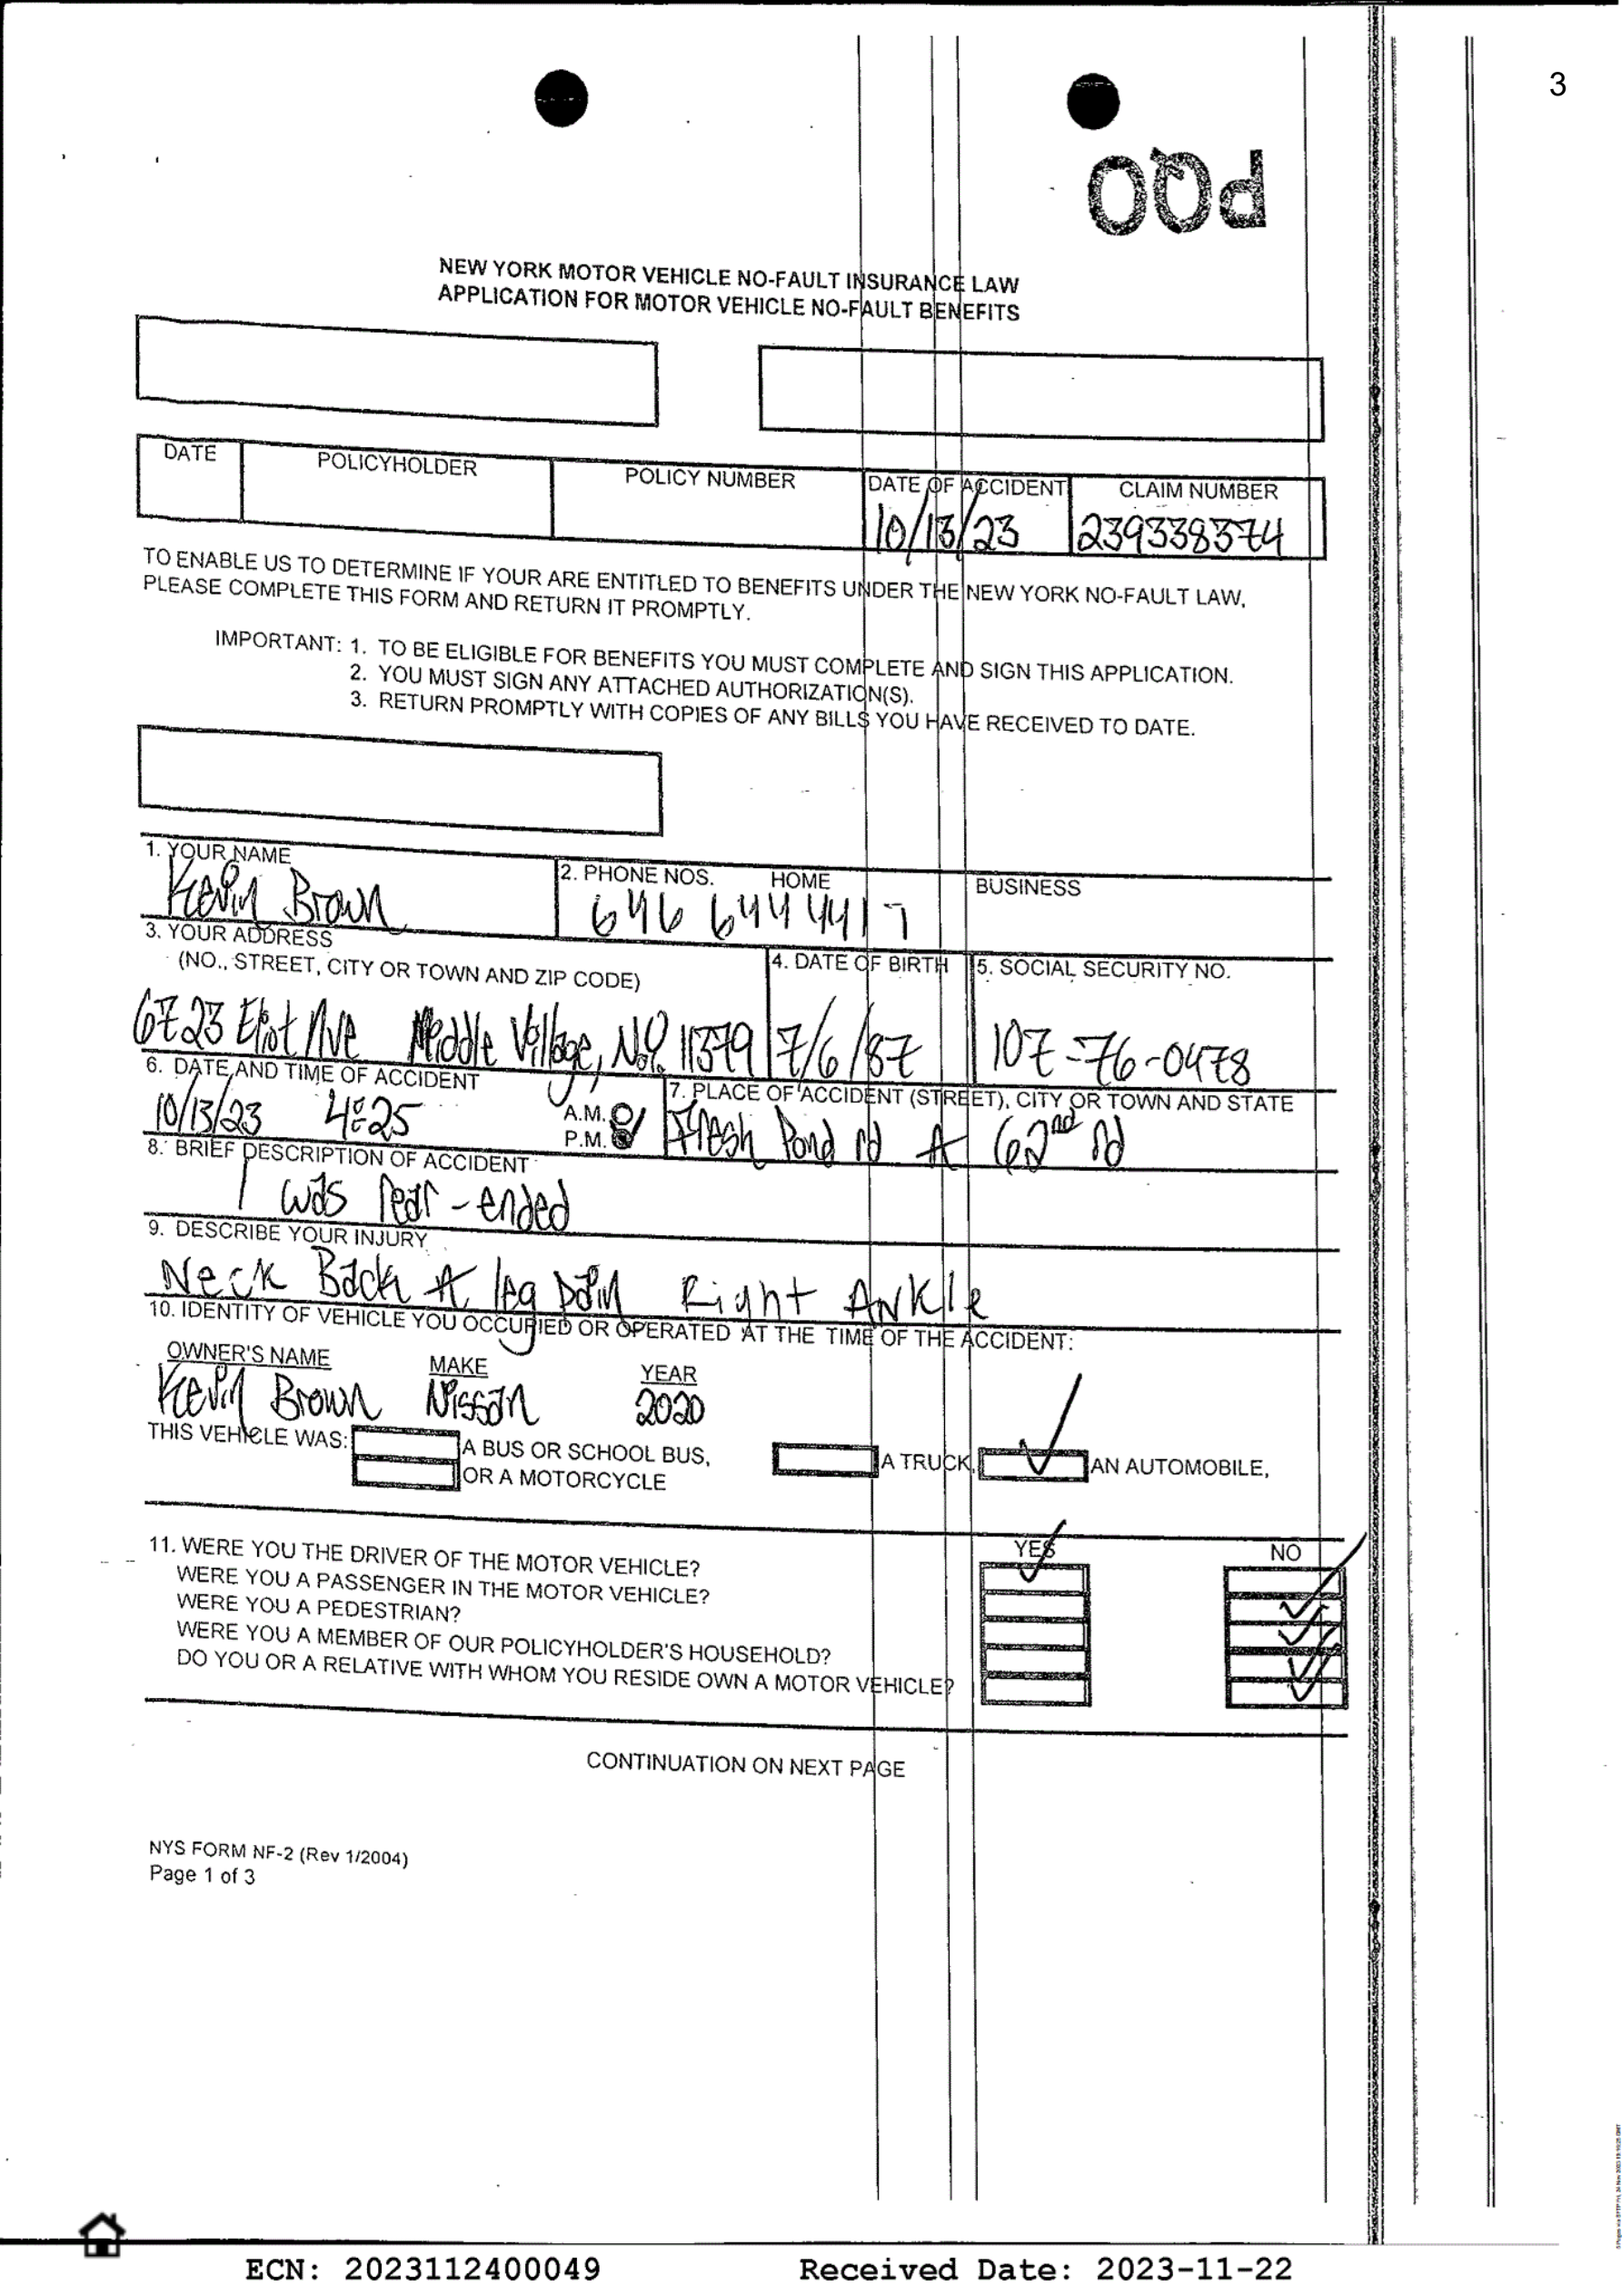 3
OOd
NEW YORK MOTOR VEHICLE NO-FAULT INSURANCE LAW
APPLICATION FOR MOTOR VEHICLE NO-FAULT BENEFITS
DATE POLICYHOLDER POLICY NUMBER DATE OF ACCIDENT CLAIM NUMBER
10/13/23 239338374
TO ENABLE US TO DETERMINE IF YOUR ARE ENTITLED TO BENEFITS UNDER THE NEW YORK NO-FAULT LAW,
PLEASE COMPLETE THIS FORM AND RETURN IT PROMPTLY.
IMPORTANT: 1. TO BE ELIGIBLE FOR BENEFITS YOU MUST COMPLETE AND SIGN THIS APPLICATION.
2. YOU MUST SIGN ANY ATTACHED AUTHORIZATION(S).
3. RETURN PROMPTLY WITH COPIES OF ANY BILLS YOU HAVE RECEIVED TO DATE.
1. YOUR NAME 2. PHONE NOS. HOME BUSINESS
Kevin Brown 646 644 4417
3. YOUR ADDRESS
(NO., STREET, CITY OR TOWN AND ZIP CODE) 4. DATE OF BIRTH 5. SOCIAL SECURITY NO.
6723 Eliot Ave Middle Village, N.Y. 11379 7/6/87 107-76-0478
6. DATE AND TIME OF ACCIDENT 7. PLACE OF ACCIDENT (STREET), CITY OR TOWN AND STATE
10/13/23 4:25 A.M. P.M. Fresh Pond rd & 62nd rd
8. BRIEF DESCRIPTION OF ACCIDENT
I was rear-ended
9. DESCRIBE YOUR INJURY
Neck Back & leg pain Right Ankle
10. IDENTITY OF VEHICLE YOU OCCUPIED OR OPERATED AT THE TIME OF THE ACCIDENT:
OWNER'S NAME MAKE YEAR
Kevin Brown Nissan 2020
THIS VEHICLE WAS: A BUS OR SCHOOL BUS, A TRUCK, AN AUTOMOBILE,
OR A MOTORCYCLE
YES NO
11. WERE YOU THE DRIVER OF THE MOTOR VEHICLE?
WERE YOU A PASSENGER IN THE MOTOR VEHICLE?
WERE YOU A PEDESTRIAN?
WERE YOU A MEMBER OF OUR POLICYHOLDER'S HOUSEHOLD?
DO YOU OR A RELATIVE WITH WHOM YOU RESIDE OWN A MOTOR VEHICLE?
CONTINUATION ON NEXT PAGE
NYS FORM NF-2 (Rev 1/2004)
Page 1 of 3
ECN: 2023112400049 Received Date: 2023-11-22